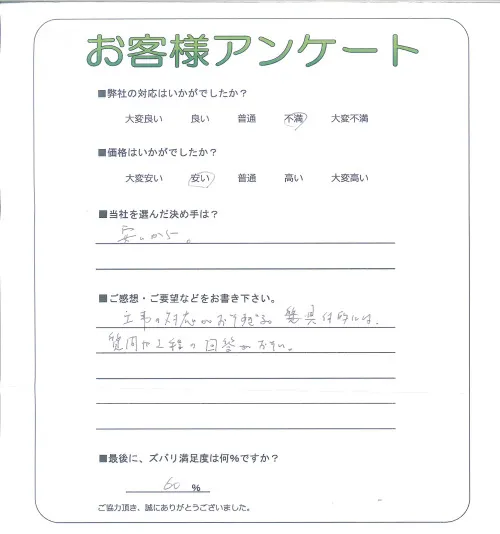 お客様アンケート
■弊社の対応はいかがでしたか？
大変良い 良い 普通 不満 大変不満
■価格はいかがでしたか？
大変安い 安い 普通 高い 大変高い
■当社を選んだ決め手は？
安いから。
■ご感想・ご要望などをお書き下さい。
工事の対応がおそすぎる 具体的には、
質問や工程の回答がおそい。
■最後に、ズバリ満足度は何%ですか？
60 %
ご協力頂き、誠にありがとうございました。